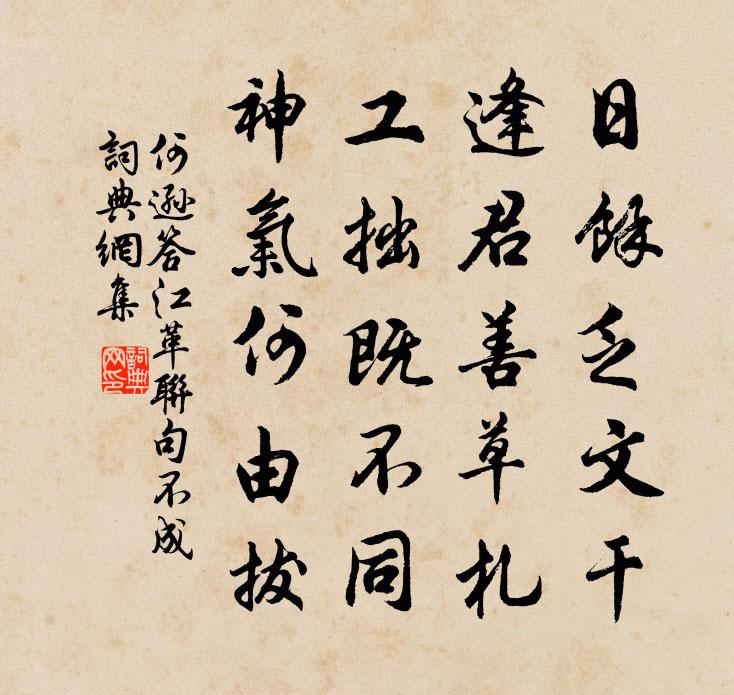 日餘乏文干
逢君善草札
工拙既不同
神氣何由拔
何遜答江革聯句不成
詞典網集
詞典網印